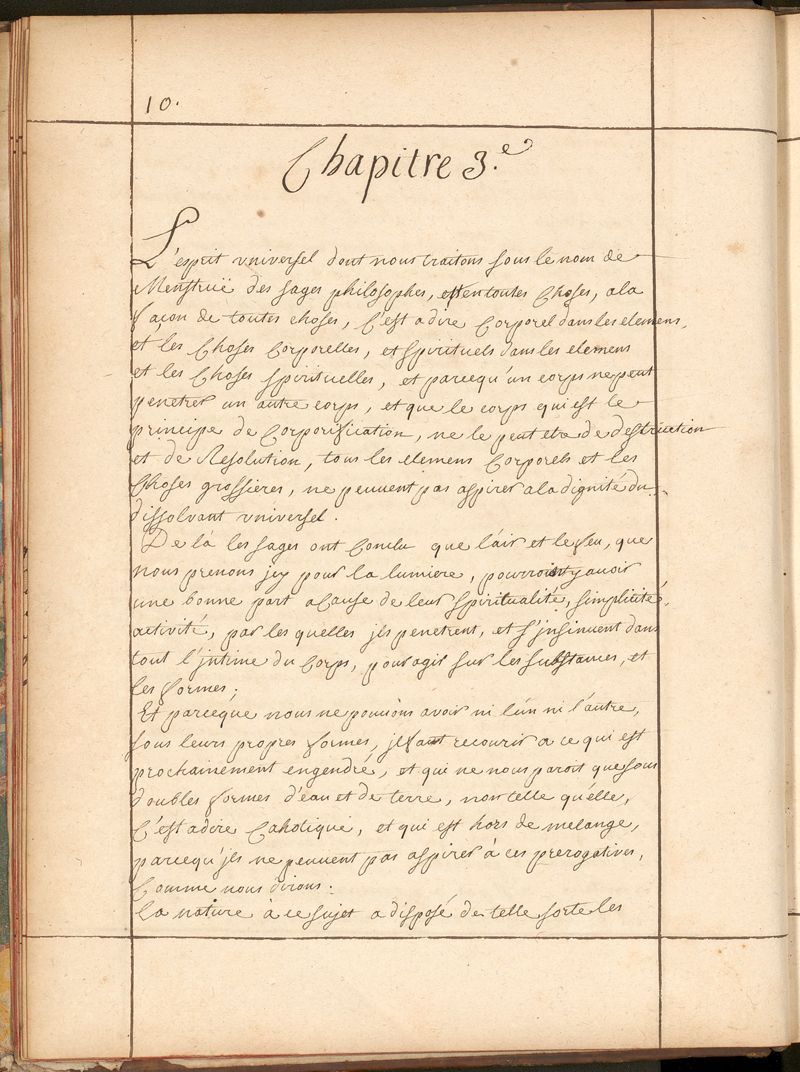 10.
Chapitre 3.e
L'esprit vniversel dont nous traitons sous le nom de
Menstruë des sages philosophes, est en toutes choses, a la
façon de toutes choses, C'est a dire Corporel dans les elemens,
et les Choses Corporelles, et spirituels dans les elemens
et les Choses spirituelles, et parcequ'un corps ne peut
penetrer un autre corps, et que le corps qui est le
principe de Corporification, ne le peut etre de destruction
et de Resolution, tous les elemens Corporels et les
Choses grossieres, ne peuvent pas aspirer a la dignité du
dissolvant vniversel.
De là les sages ont Conclu que l'air et le feu, que
nous prenons jcy pour la lumiere, pourroint y avoir
une bonne part a Cause de leur spiritualité, simplicité,
activité, par les quelles jls penetrent, et s'jnsinuent dans
tout l'jntime du Corps, pour agir sur les substances, et
les formes;
Et parceque nous ne pouvons avoir ni l'un ni l'autre,
sous leurs propres formes, jl faut recourir a ce qui est
prochainement engendré, et qui ne nous paroit que sous
doubles formes d'eau et de terre, non telle qu'elle,
C'est a dire Catholique, et qui est hors de melange,
parcequ'jls ne peuvent pas aspirer à ces prerogatives,
Comme nous dirons.
La nature à ce sujet a disposé de telle sorte les